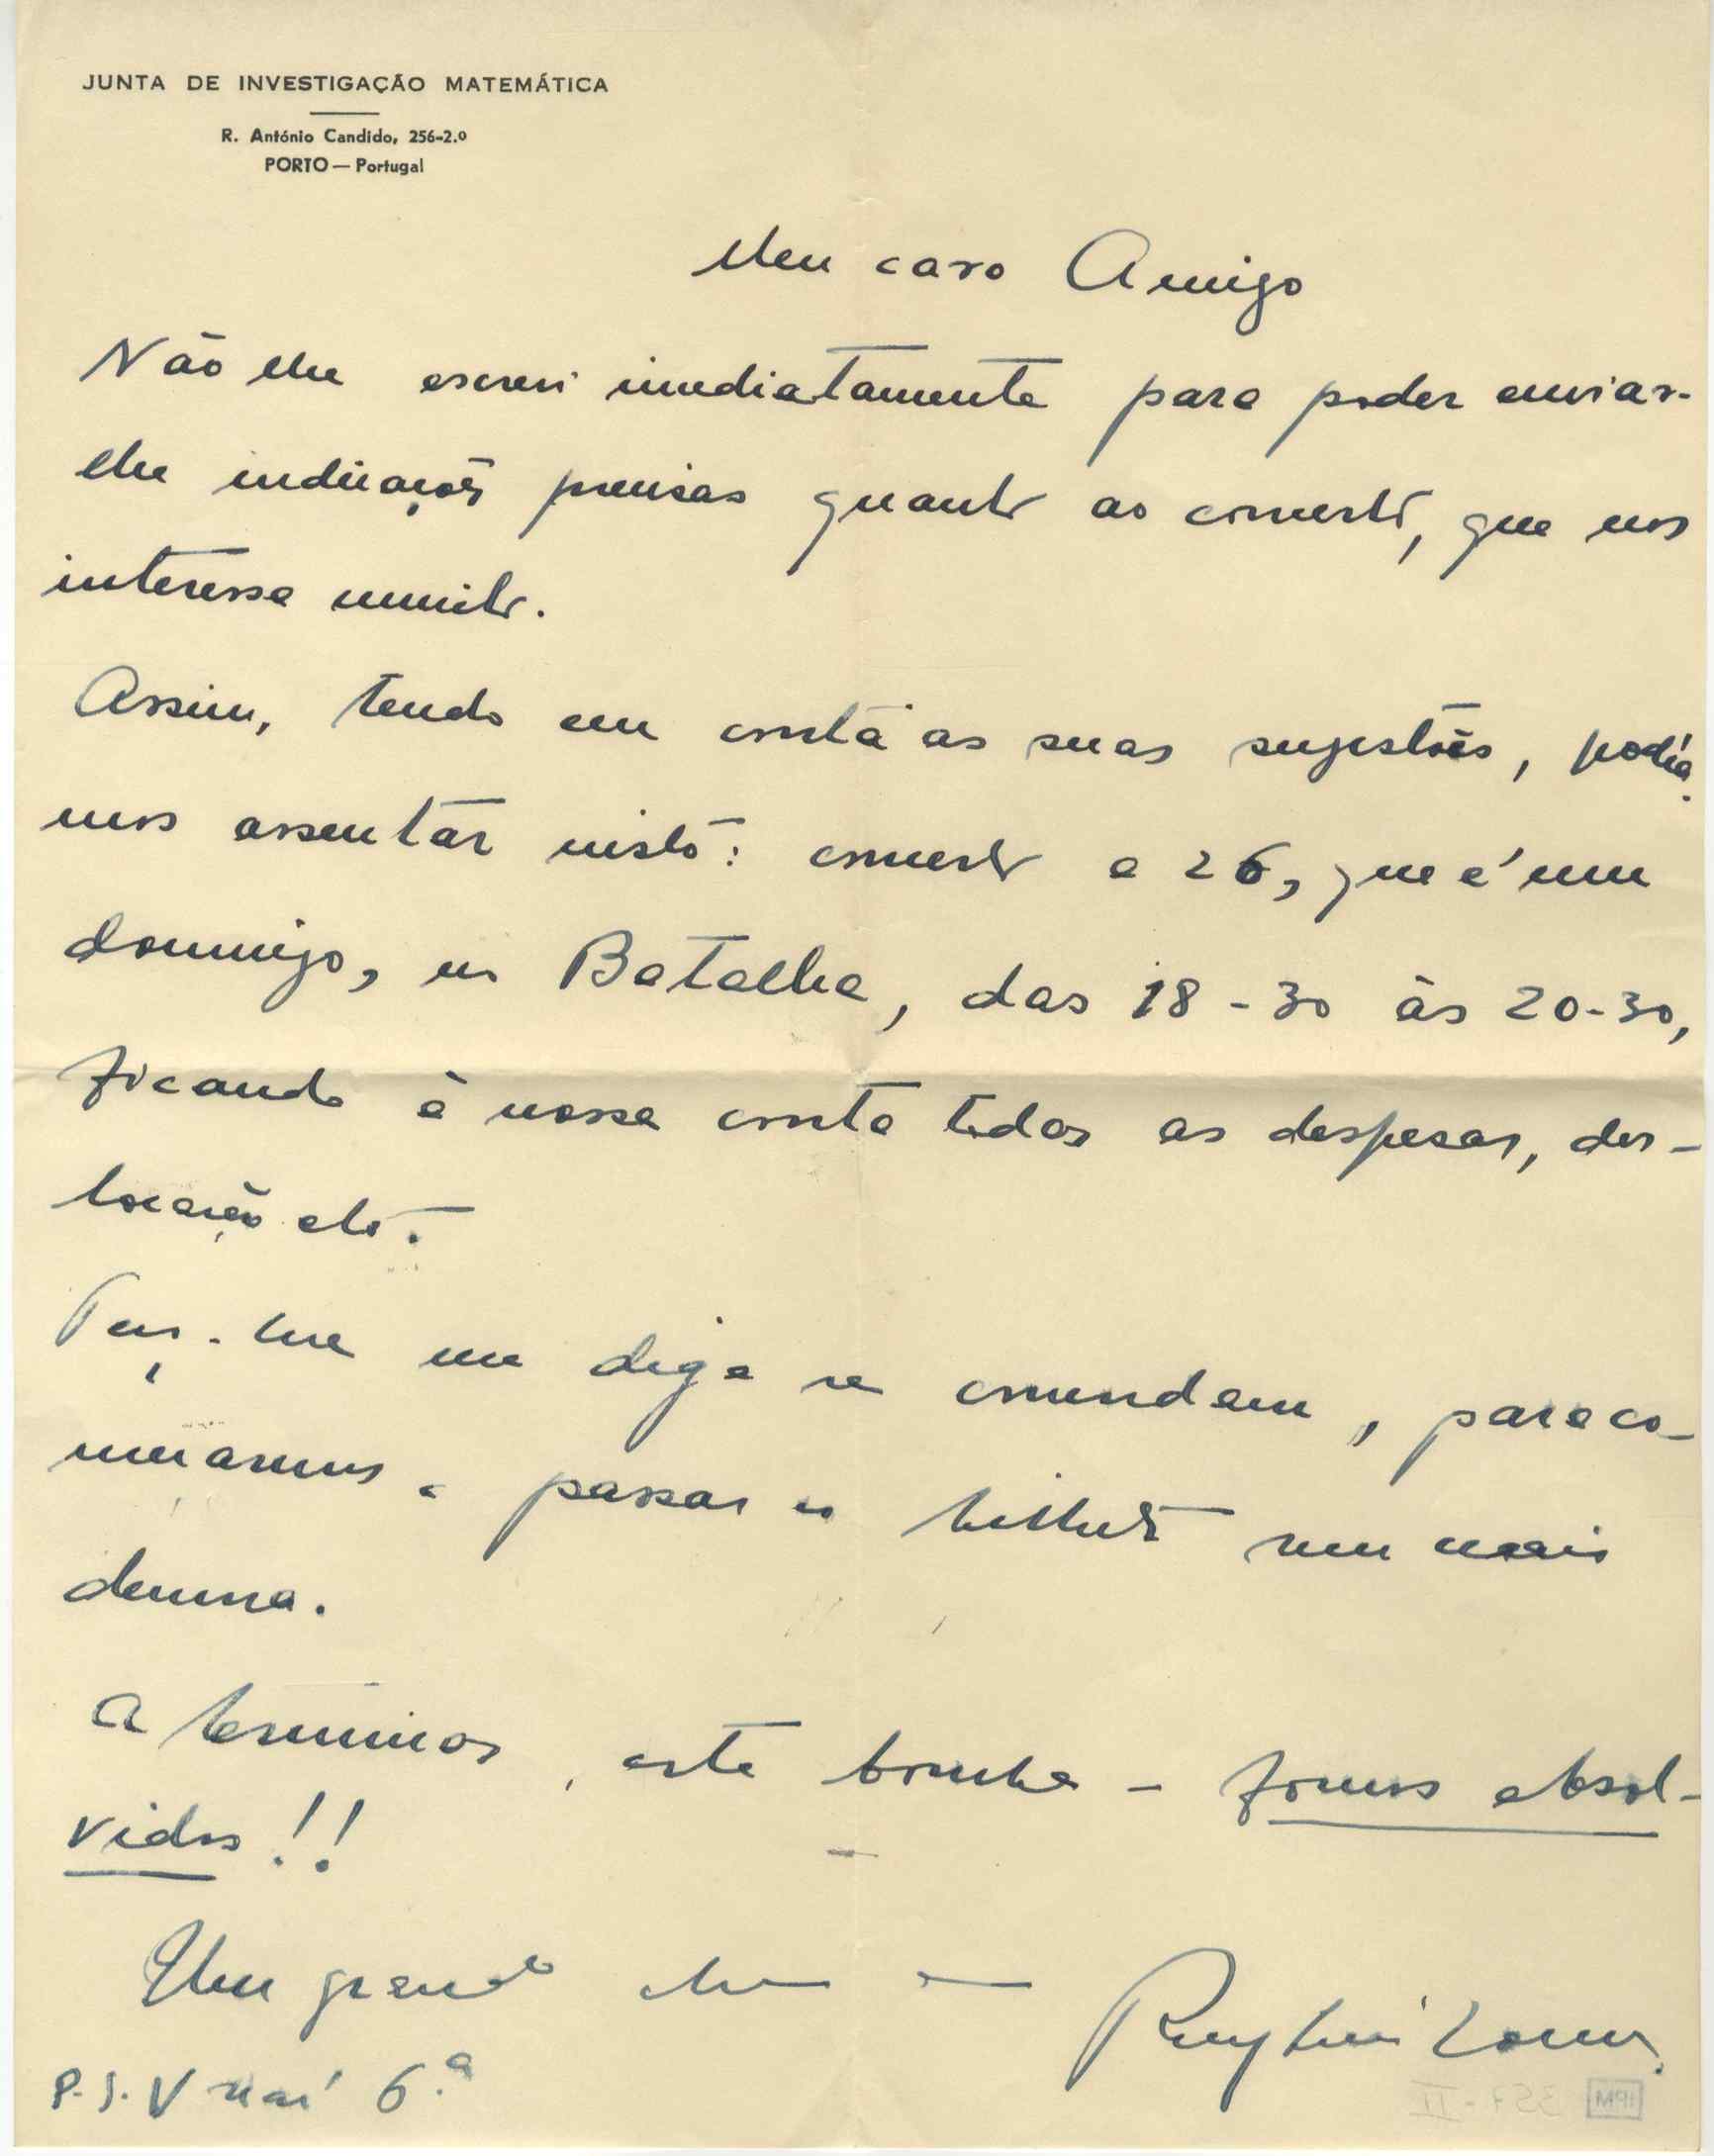 JUNTA DE INVESTIGAÇÃO MATEMÁTICA
R. António Candido, 256-2.º
PORTO — Portugal
Meu caro Amigo
Não lhe escrevi imediatamente para poder enviar-
lhe indicações precisas quanto ao concerto, que nos
interessa muito.
Assim, tendo em conta as suas sugestões, podía-
mos assentar nisto: concerto a 26, que é um
domingo, no Batalha, das 18-30 às 20-30,
ficando à nossa conta todas as despesas, des-
locação etc.
Peço-lhe me diga se concordam, para co-
meçarmos a passar os bilhetes sem mais
demora.
A terminar, esta bomba - fomos absol-
vidos!!
Um grande
Ruy Luís Gomes
P.S. V 6.ª
IPM 357-II